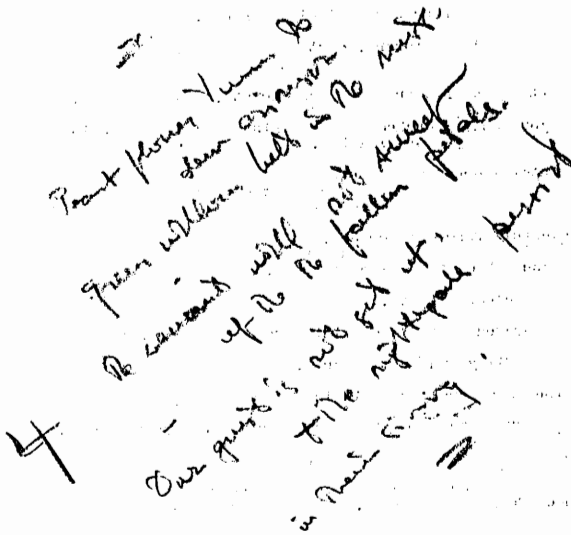 IV.
Peach flowers turn the
dew crimson.
green willows melt in the mist.
the servant will not sweep
up the the fallen petals.
—
Our guest is not up,
+ the nightingale persist
in their singing.
4